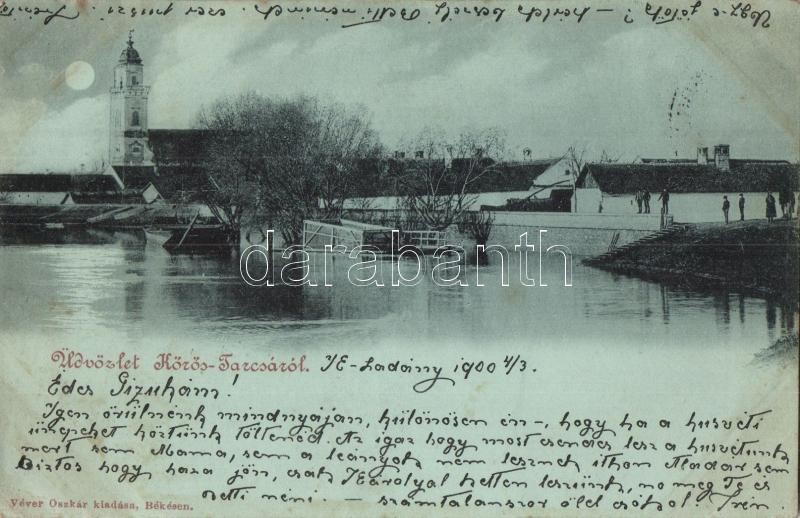 Üdvözlet Körös-Tarcsáról. KE-Ladány 1900 4/3.
Édes Gizukám!
Igen örülnénk mindnyájan, különösen én-, hogy ha a husvéti
ünnepeket köztünk töltenéd. Az igaz hogy most csendes lesz a husvétunk
mert sem Mama, sem a leányok nem lesznek itthon Aladár sem
biztos hogy haza jön, csak Károlyal ketten leszünk, no meg Te és
Betti néni. — számtalanszor ölel csókol: Irén.
Véver Oszkár kiadása, Békésen.
darabanth